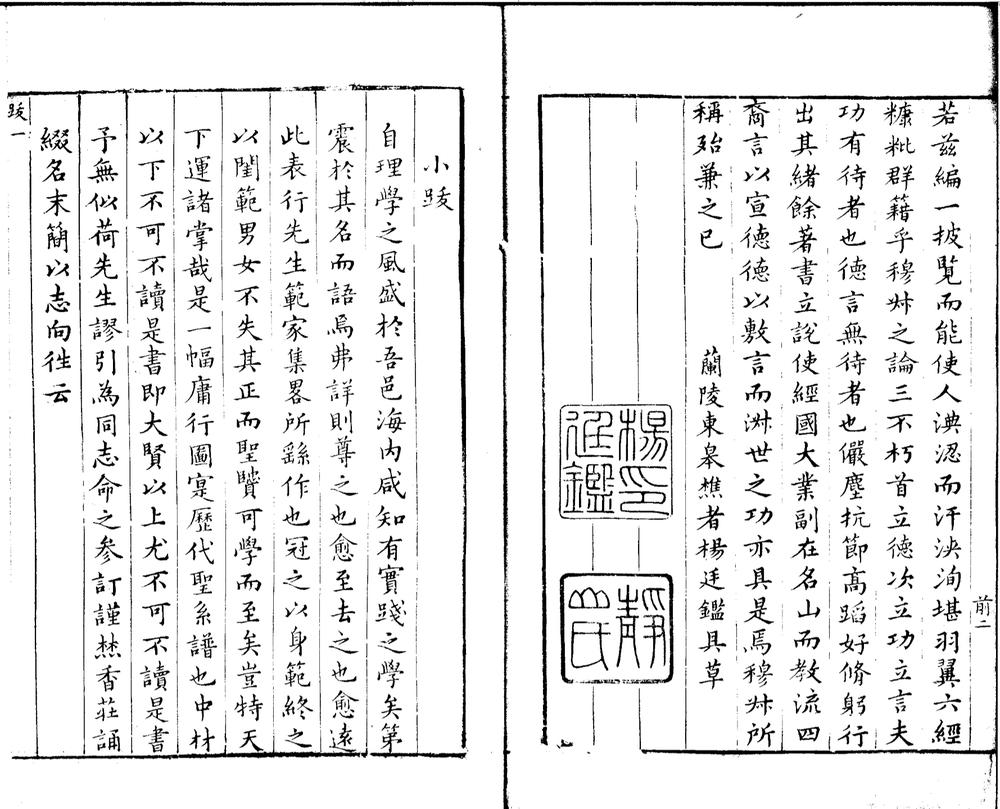 若茲編一披覽而能使人淟涊而汗泱洵堪羽翼六經
糠粃群籍乎穆叔之論三不朽首立德次立功立言夫
功有待者也德言無待者也儼塵抗節高蹈好脩躬行
出其緒餘著書立說使經國大業副在名山而教流四
裔言以宣德德以敷言而淑世之功亦具是焉穆叔所
稱殆兼之已　蘭陵東皋樵者楊廷鑑具草
楊廷鑑印
靜山氏
前二
小跋
自理學之風盛於吾邑海内咸知有實踐之學矣第
震於其名而語焉弗詳則尊之也愈至去之也愈遠
此表行先生範家集畧所繇作也冠之以身範終之
以閨範男女不失其正而聖賢可學而至矣豈特天
下運諸掌哉是一幅庸行圖寔歷代聖系譜也中材
以下不可不讀是書即大賢以上尤不可不讀是書
予無似荷先生謬引為同志命之參訂謹爇香莊誦
綴名末簡以志向徃云
跋一